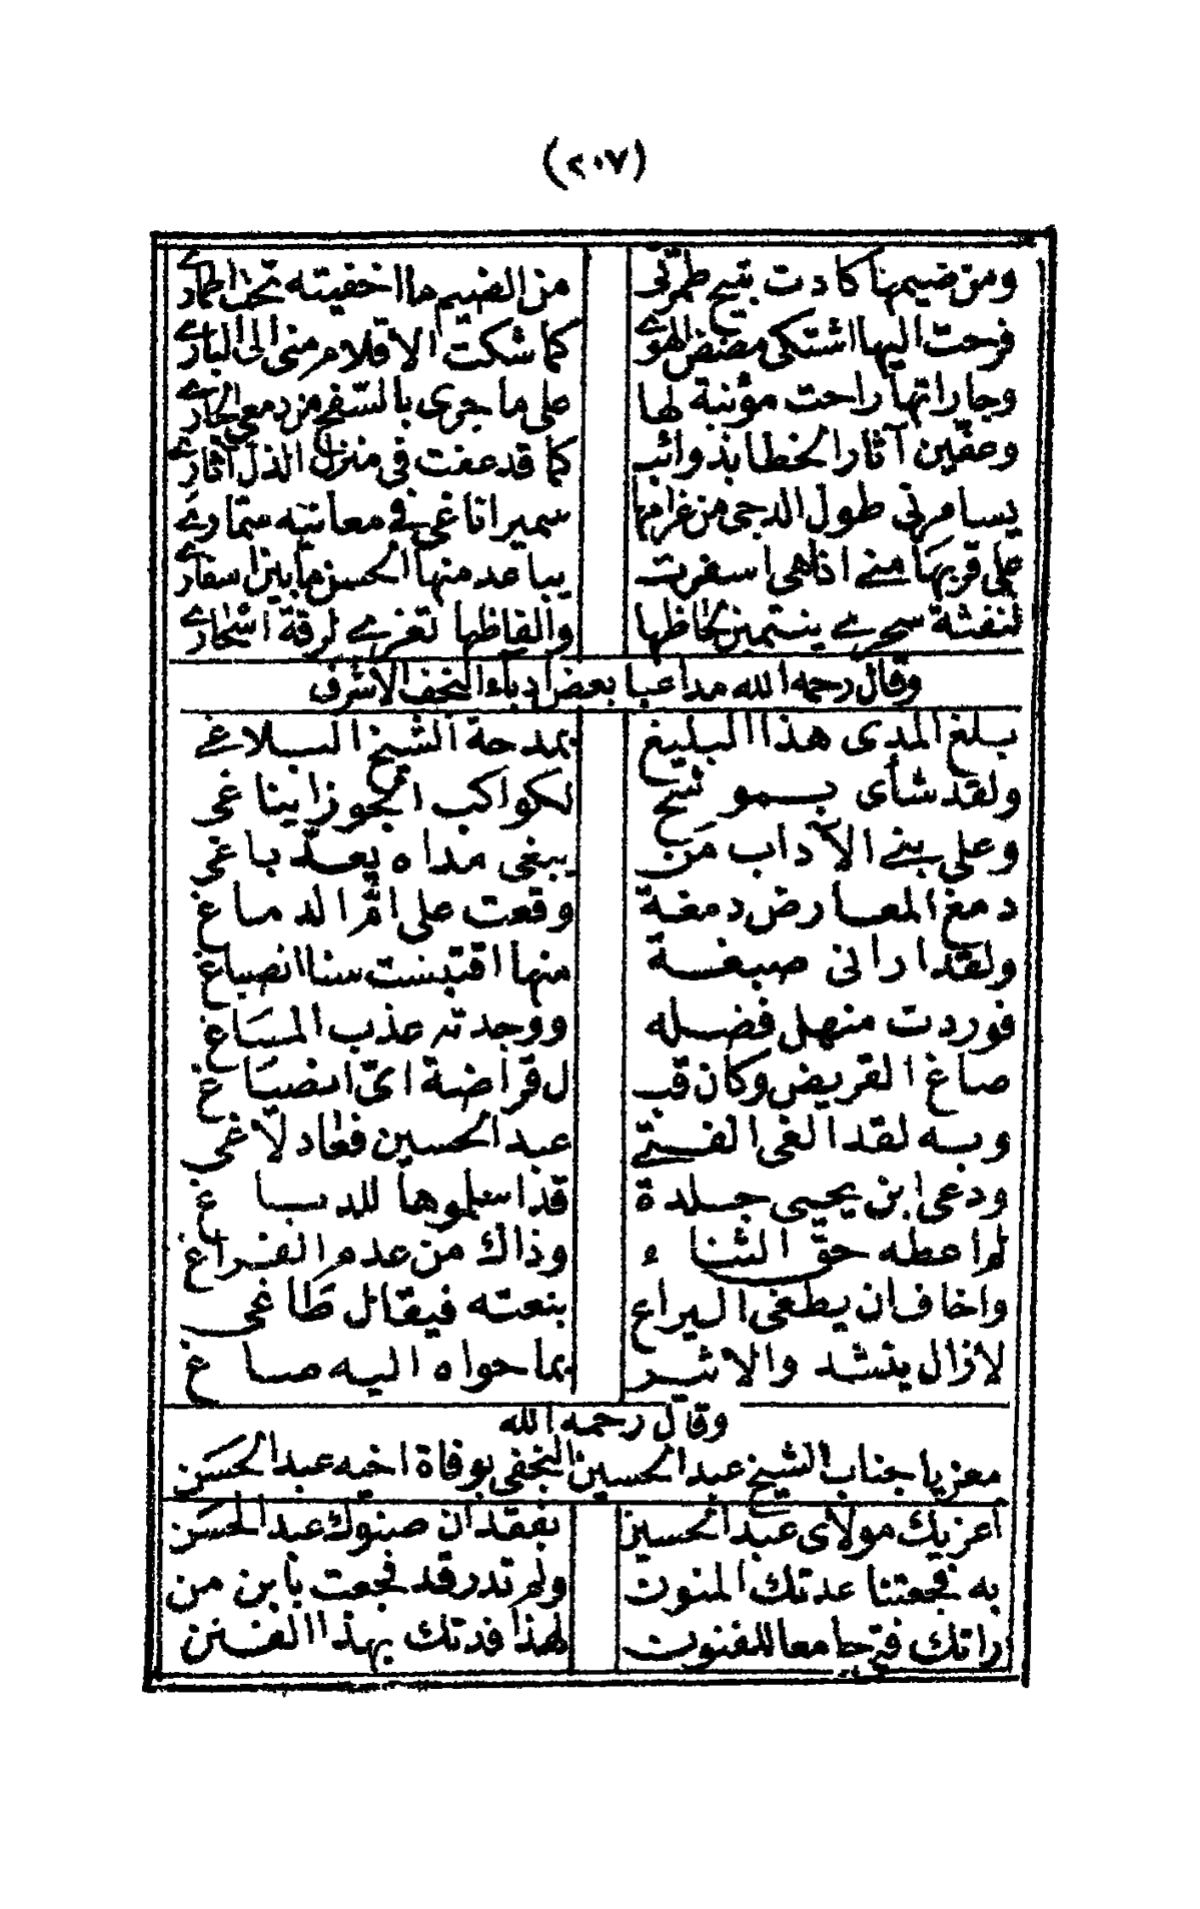 (٢٠٧)
ومن ضيمها كادت تبيح طمرّتي من الضيم ما اخفيته تحت اطماري
فرحت اليها اشتكي مضض الهوى كما شكت الاقلام مني الى الباري
وجاراتها راحت مؤنبة لها على ما جرى بالسفح من دمعي الجاري
وعفّين آثار الخطا بذوائب كما قد عفت في منزل الذل آثاري
يسامرني طول الدجى من غرامها سمير اناغي في معانيه سمّاري
على قربها مني اذا هي اسفرت يباعد منها الحسن ما بين اسفاري
لنفثة سحري ينتمين لحاظها والفاظها تعزى لرقة اشعاري
وقال رحمه الله مداعبا بعض ادباء النجف الاشرف
بلغ المدى هذا البليغ بمدحة الشيخ البلاغي
ولقد شأى بمو شح لكواكب الجوزا يناغي
وعلى بني الآداب من يبغي مداه يعدّ باغي
دمغ المعارض دمغة وقعت على امّ الدماغ
ولقد اراني صبغة منها اقتبست سنا انصباغ
فوردت منهل فضله ووجدته عذب المساغ
صاغ القريض وكان قب ل قراضة ايّ انصياغ
وبه لقد الغى الفتى عبد الحسين فعاد لاغي
ودعى ابن يحيى جلدة قد اسلموها للدباغ
لم اعطه حقّ الثناء وذاك من عدم الفراغ
واخاف ان يطغى اليراع بنعته فيقال طاغي
لازال ينشد والاثير بما حواه اليه صاغ
وقال رحمه الله
معزيا جناب الشيخ عبد الحسين النجفي بوفاة اخيه عبد الحسن
اعزيك مولاي عبد الحسين بفقدان صنوك عبد الحسن
به فجعتنا عدتك المنون ولم تدر قد فجعت بابن من
راتك فتى جامعا للفنون لهذا فدتك بهذا الفنن